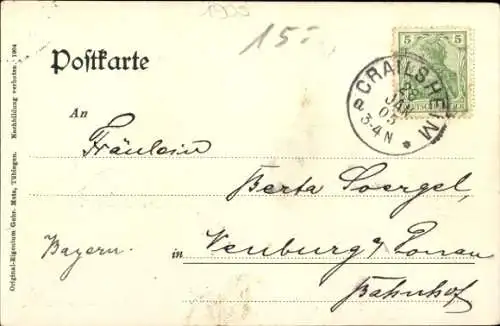 1905
15.-
5 5
Postkarte
CRAILSHEIM
JAN
05
3-4 N
An
Fräulein
Berta Soergel
Bayern.
in Neuburg a/ Donau
Bahnhof
Original-Eigentum Gebr. Metz, Tübingen. Nachbildung verboten. 1904